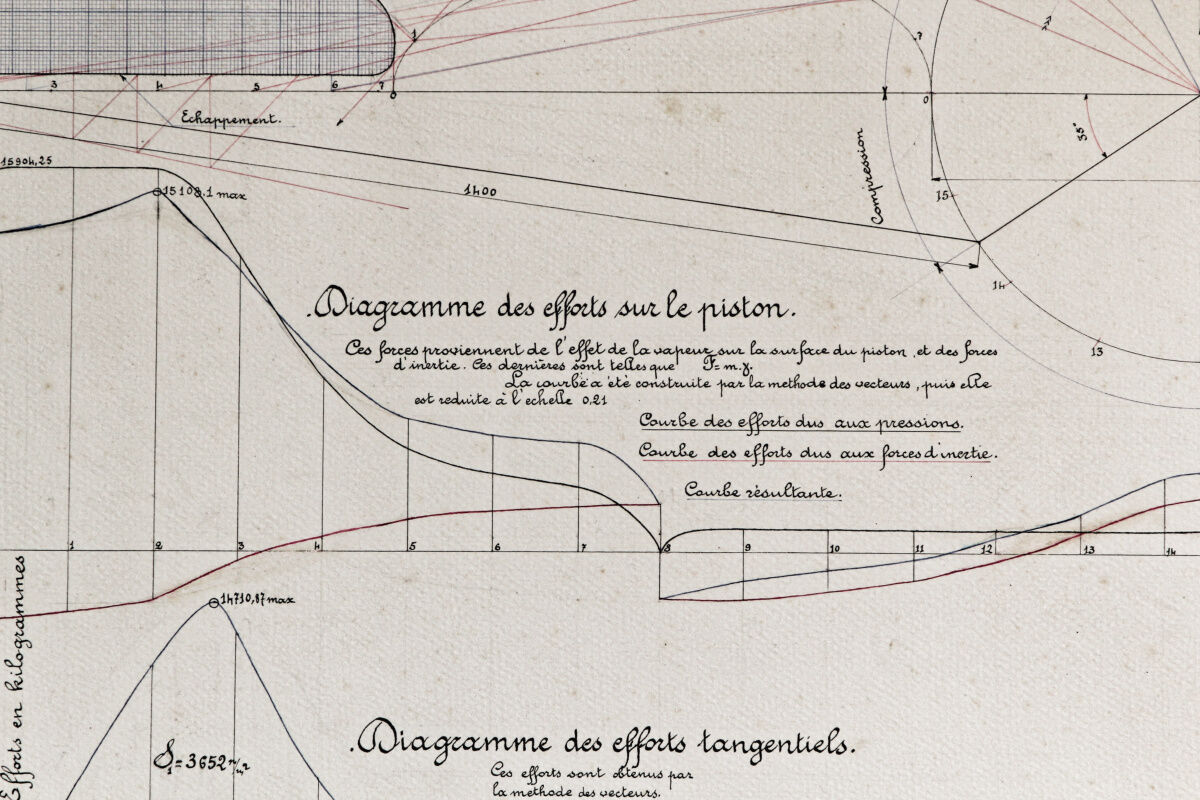 1
3 4 5 6 7 0
Echappement.
0
35°
Compression
15904,25
15108.1 max
1400
15
14
13
.Diagramme des efforts sur le piston.
Ces forces proviennent de l'effet de la vapeur sur la surface du piston ,et des forces
d'inertie. Ces dernières sont telles que F=m.γ.
La courbe a été construite par la methode des vecteurs, puis elle
est reduite à l'echelle 0,21
Courbe des efforts dus aux pressions.
Courbe des efforts dus aux forces d'inertie.
Courbe résultante.
1 2 3 4 5 6 7 8 9 10 11 12 13 14
Efforts en kilogrammes
14710,87 max
.Diagramme des efforts tangentiels.
S₁=3652 m/m²
Ces efforts sont obtenus par
la methode des vecteurs.